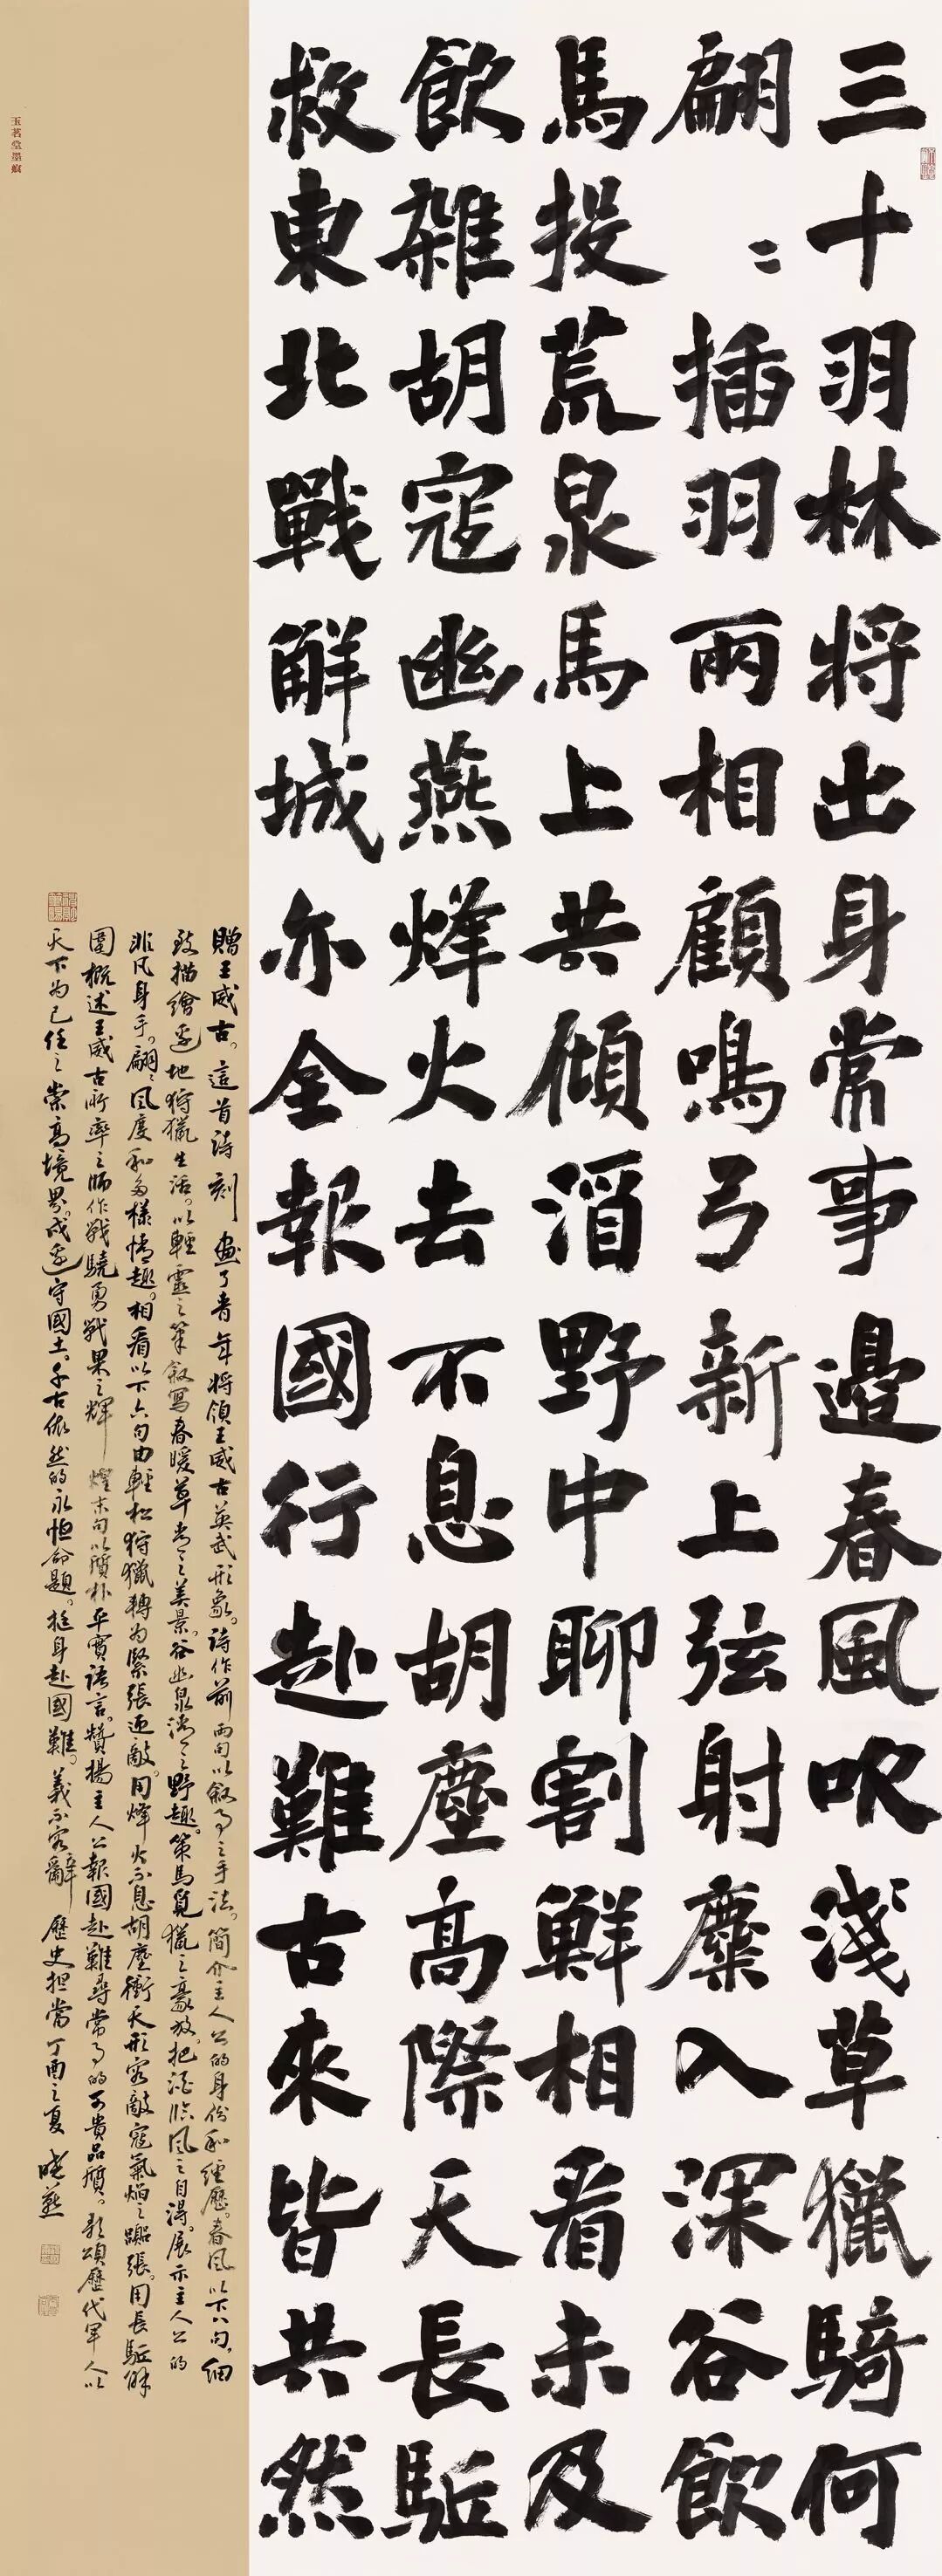 三十羽林将出身常事邊春風吹淺草獵騎何
翩〻插羽兩相顧鳴弓新上弦射麋入深谷飲
馬投荒泉馬上共傾酒野中聊割鮮相看未及
飲雜胡寇幽燕烽火去不息胡塵高際天長駈
救東北戰解城亦全報國行赴難古來皆共然
贈王威古。這首詩刻畫了青年将領王威古英武形象。詩作前兩句以敘事之手法。簡介主人公的身份和經歷。春風以下八句。細
致描繪邊地狩獵生活。以輕靈之筆敘寫春暖草青之美景。谷幽泉清之野趣。策馬覓獵之豪放。把酒臨風之自得。展示主人公的
非凡身手。翩〻風度和多樣情趣。相看以下六句由輕松狩獵轉为緊張迎敵。用烽火不息胡塵衝天形容敵寇氣焰之囂張。用長駈解
圍概述王威古所率之師作戰驍勇戰果之輝煌末句以質朴平實語言。贊揚主人公報國赴難尋常事的可貴品質。歌頌歷代軍人以
天下为己任之崇高境界。戍邊守國土。千古依然的永恒命題。挺身赴國難。義不容辭歷史担當丁酉之夏 曉燕
玉茗堂墨痕